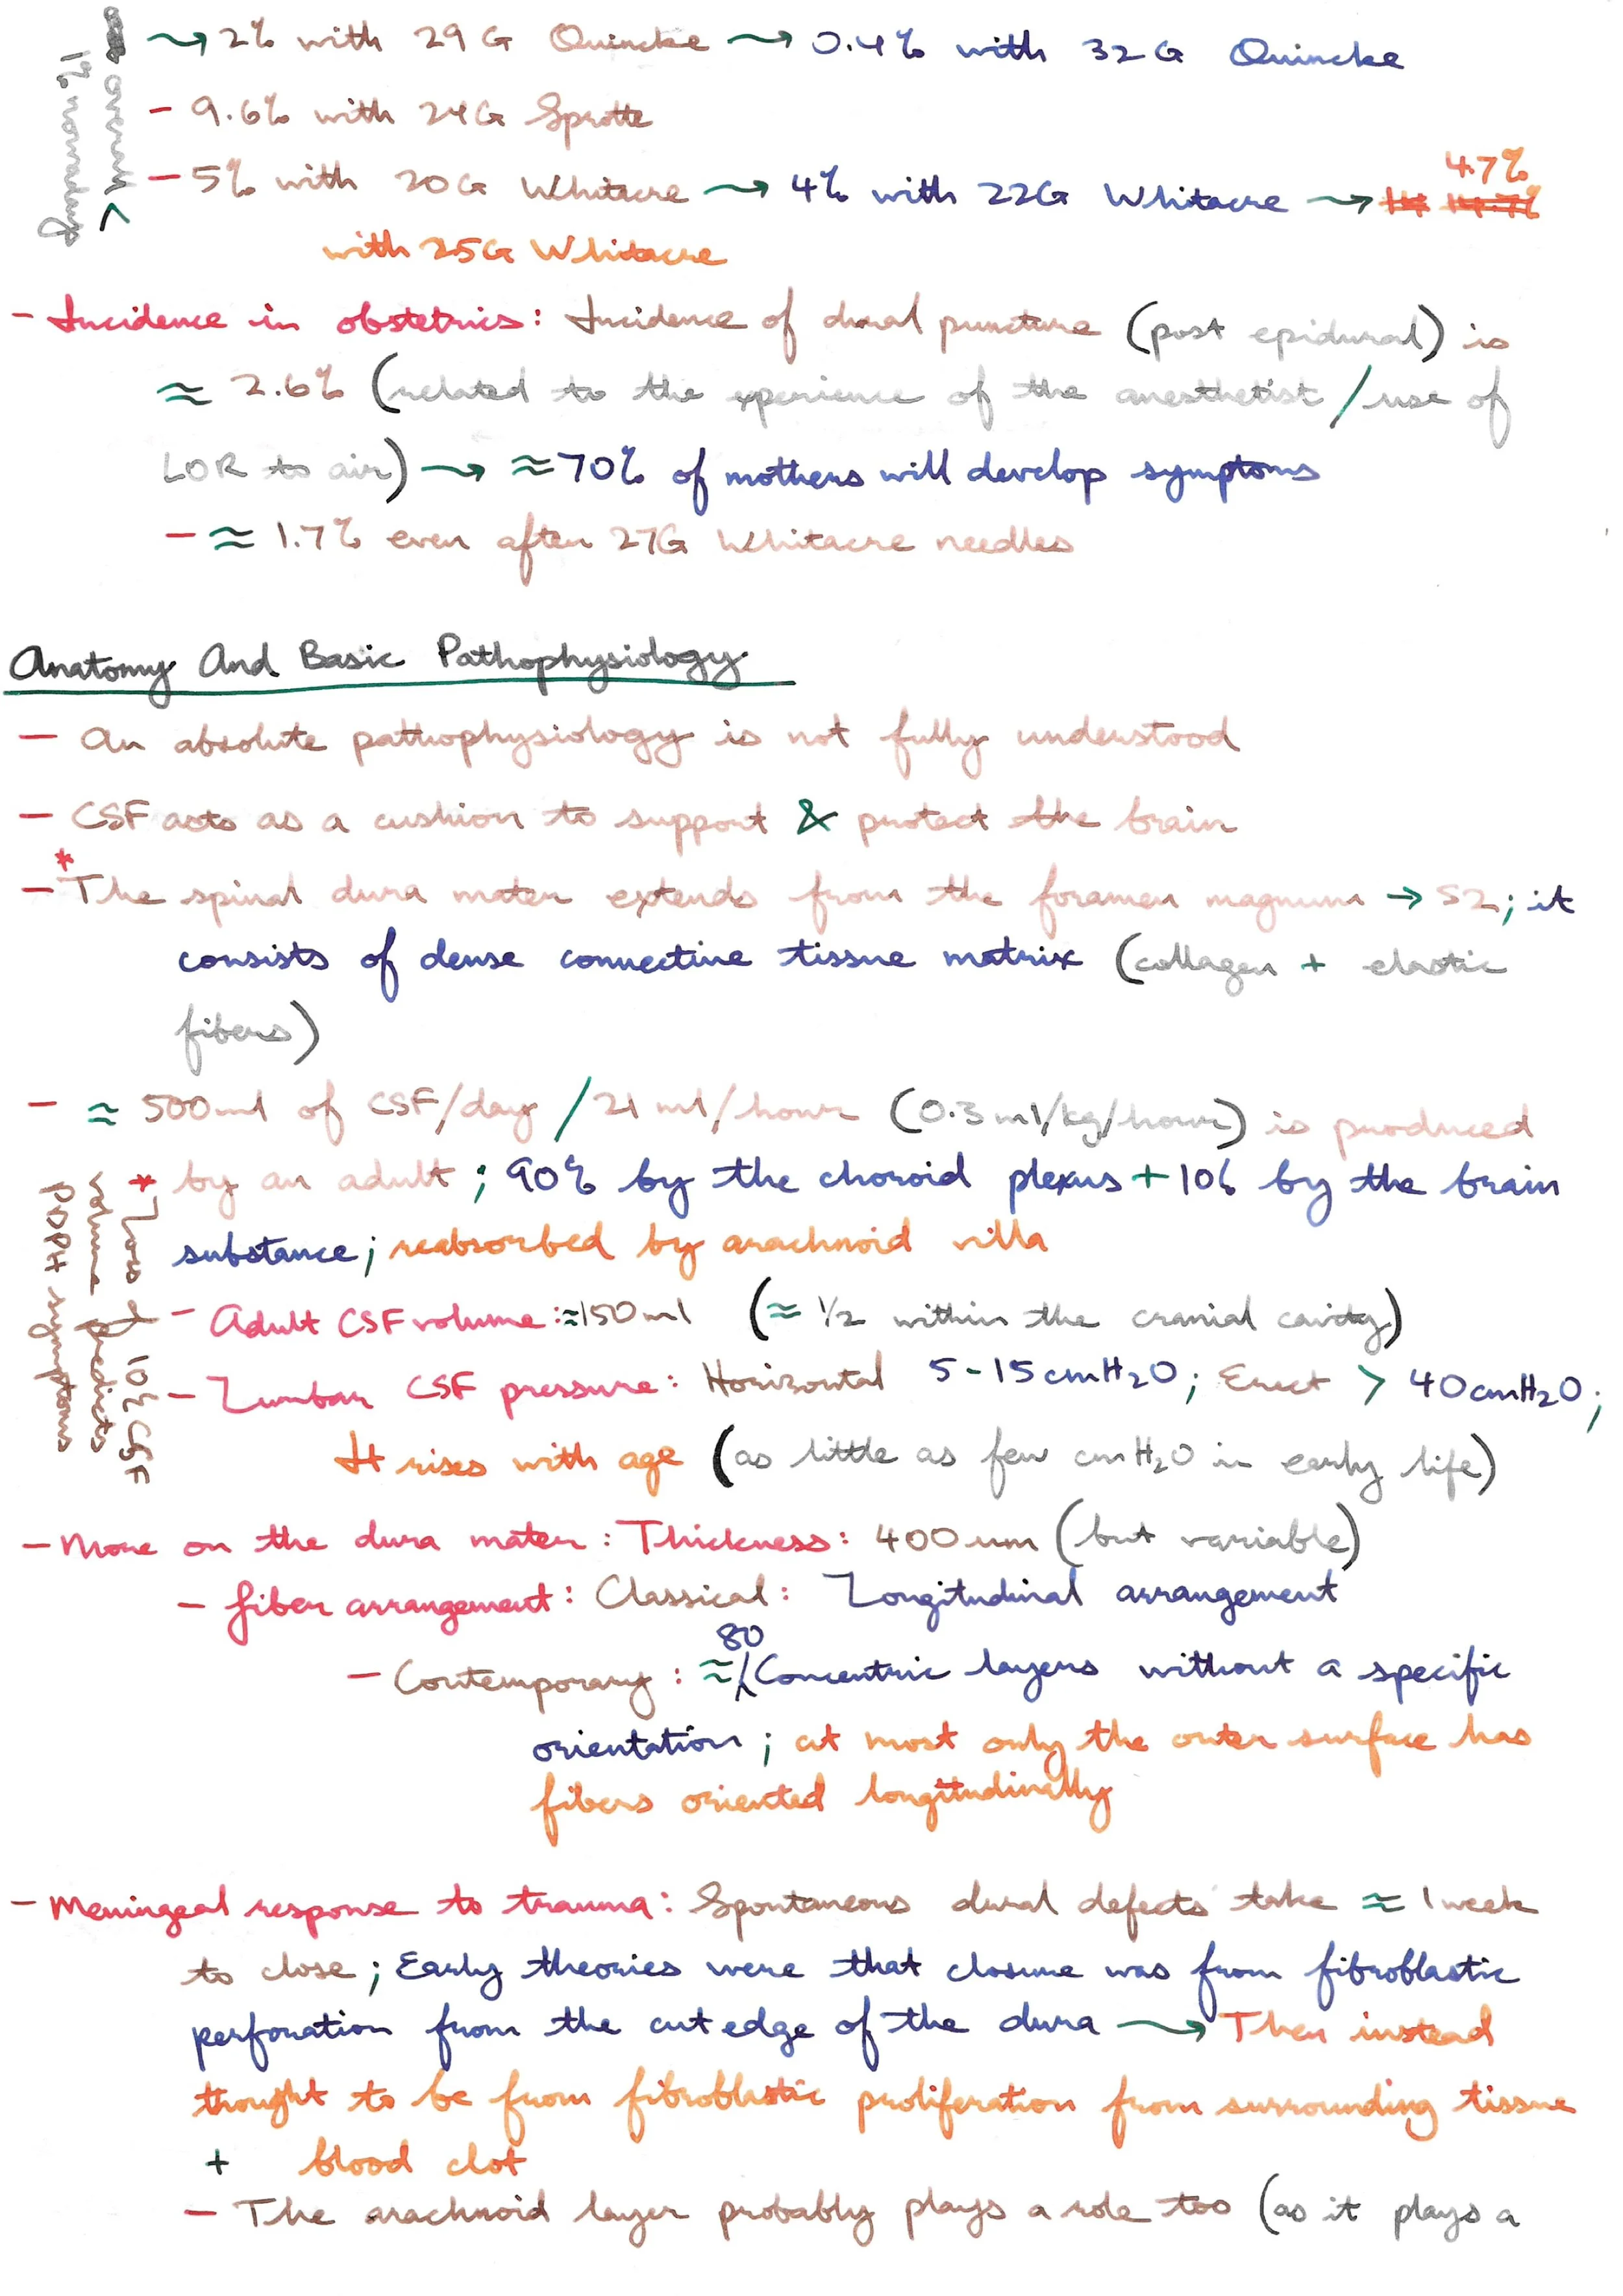 → 2% with 29G Quincke → 0.4% with 32G Quincke
- 9.6% with 24G Sprotte
- 5% with 20G Whitacre → 4% with 22G Whitacre → 4.7%
with 25G Whitacre
overall <
1% nowadays
- Incidence in obstetrics: Incidence of dural puncture (post epidural) is
≈ 2.6% (related to the xperience of the anesthetist / use of
LOR to air) → ≈ 70% of mothers will develop symptoms
- ≈ 1.7% even after 27G Whitacre needles
Anatomy And Basic Pathophysiology
- An absolute pathophysiology is not fully understood
- CSF acts as a cushion to support & protect the brain
-* The spinal dura mater extends from the foramen magnum → S2; it
consists of dense connective tissue matrix (collagen + elastic
fibers)
- ≈ 500ml of CSF/day / 21 ml/hour (0.3ml/kg/hour) is produced
by an adult; 90% by the choroid plexus + 10% by the brain
substance; reabsorbed by arachnoid villa
* Loss of 10% CSF
volume predicts
PDPH symptoms
- Adult CSF volume: ≈150ml (≈ 1/2 within the cranial cavity)
- Lumbar CSF pressure: Horizontal 5-15cmH2O; Erect > 40cmH2O;
It rises with age (as little as few cmH2O in early life)
- More on the dura mater: Thickness: 400um (but variable)
- fiber arrangement: Classical: Longitudinal arrangement
- Contemporary: ≈ 80 Concentric layers without a specific
orientation; at most only the outer surface has
fibers oriented longitudinally
- Meningeal response to trauma: Spontaneous dural defects take ≈ 1 week
to close; Early theories were that closure was from fibroblastic
perforation from the cut edge of the dura → Then instead
thought to be from fibroblastic proliferation from surrounding tissue
+ blood clot
- The arachnoid layer probably plays a role too (as it plays a